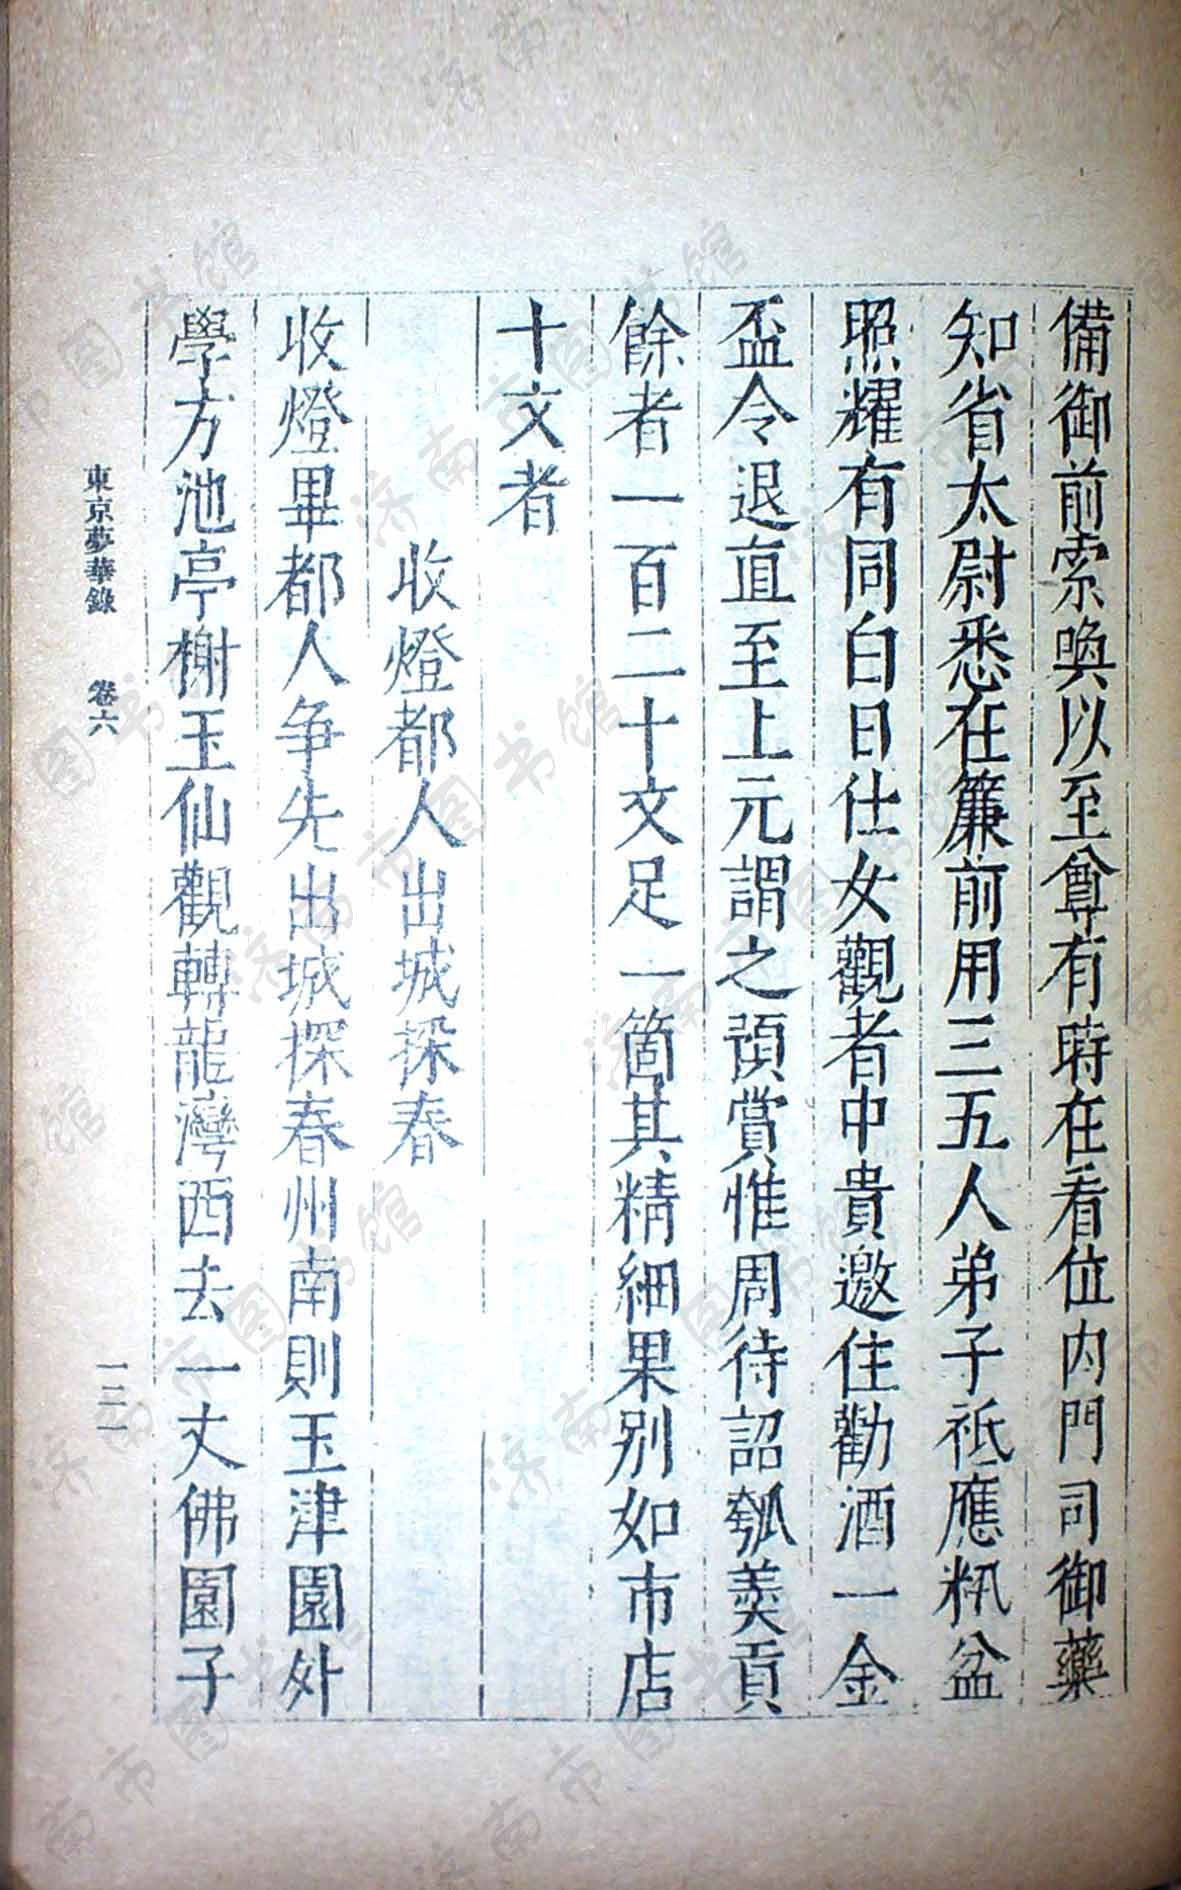 備御前索喚以至尊有時在看位内門司御藥
知省太尉悉在簾前用三五人弟子祗應籸盆
照耀有同白日仕女觀者中貴邀住勸酒一金
盃令退直至上元謂之預賞惟周待詔瓠羹貢
餘者一百二十文足一箇其精細果别如市店
十文者
收燈都人出城探春
收燈畢都人争先出城探春州南則玉津園外
學方池亭榭玉仙觀轉龍灣西去一丈佛園子
東京夢華錄 卷六
一二一
济南市图书馆